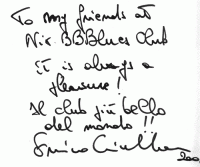 To my friends at
Nik BBBlues Club
it is always a
pleasure!
Il club più bello
del mondo!!